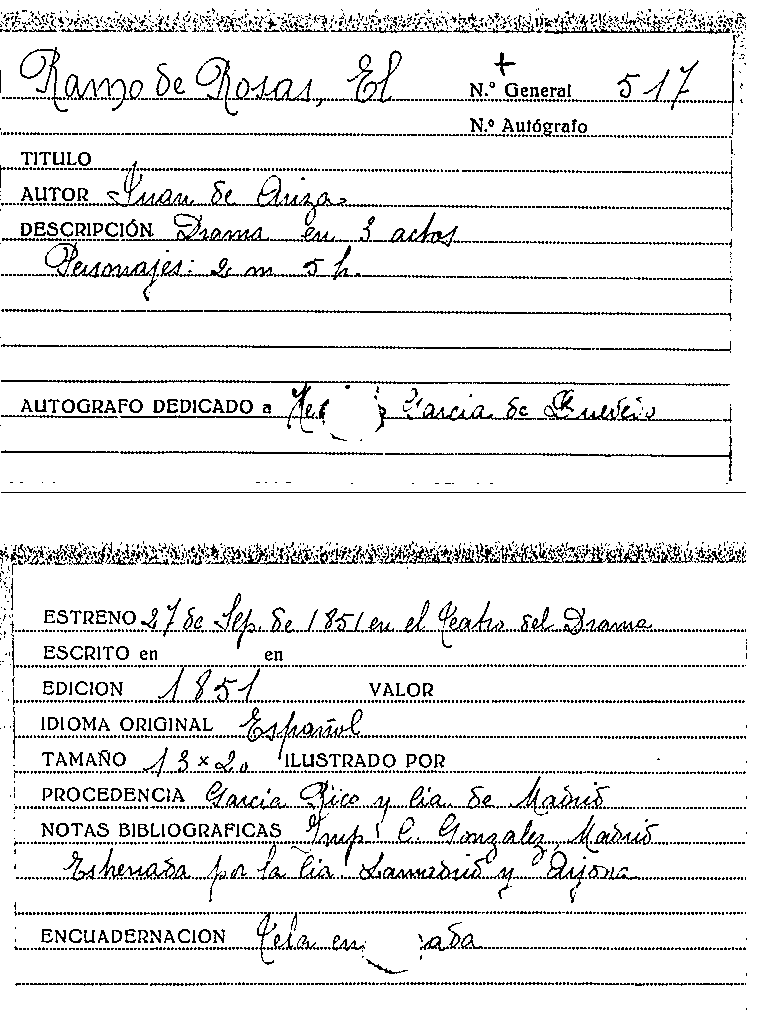 Ramo de Rosas, El N.º General 517
N.º Autógrafo
TITULO
AUTOR Juan de Ariza
DESCRIPCIÓN Drama en 3 actos
Personajes: 2 m 5 h.
AUTOGRAFO DEDICADO a García de
ESTRENO 27 de Sep. de 1851 en el Teatro del Drama
ESCRITO en en
EDICION 1851 VALOR
IDIOMA ORIGINAL Español
TAMAÑO 13 × 20 ILUSTRADO POR
PROCEDENCIA García Rico y Cía. de Madrid
NOTAS BIBLIOGRAFICAS Imp. C. Gonzalez, Madrid
Estrenada por la Cía. Lamadrid y Arjona
ENCUADERNACION Tela